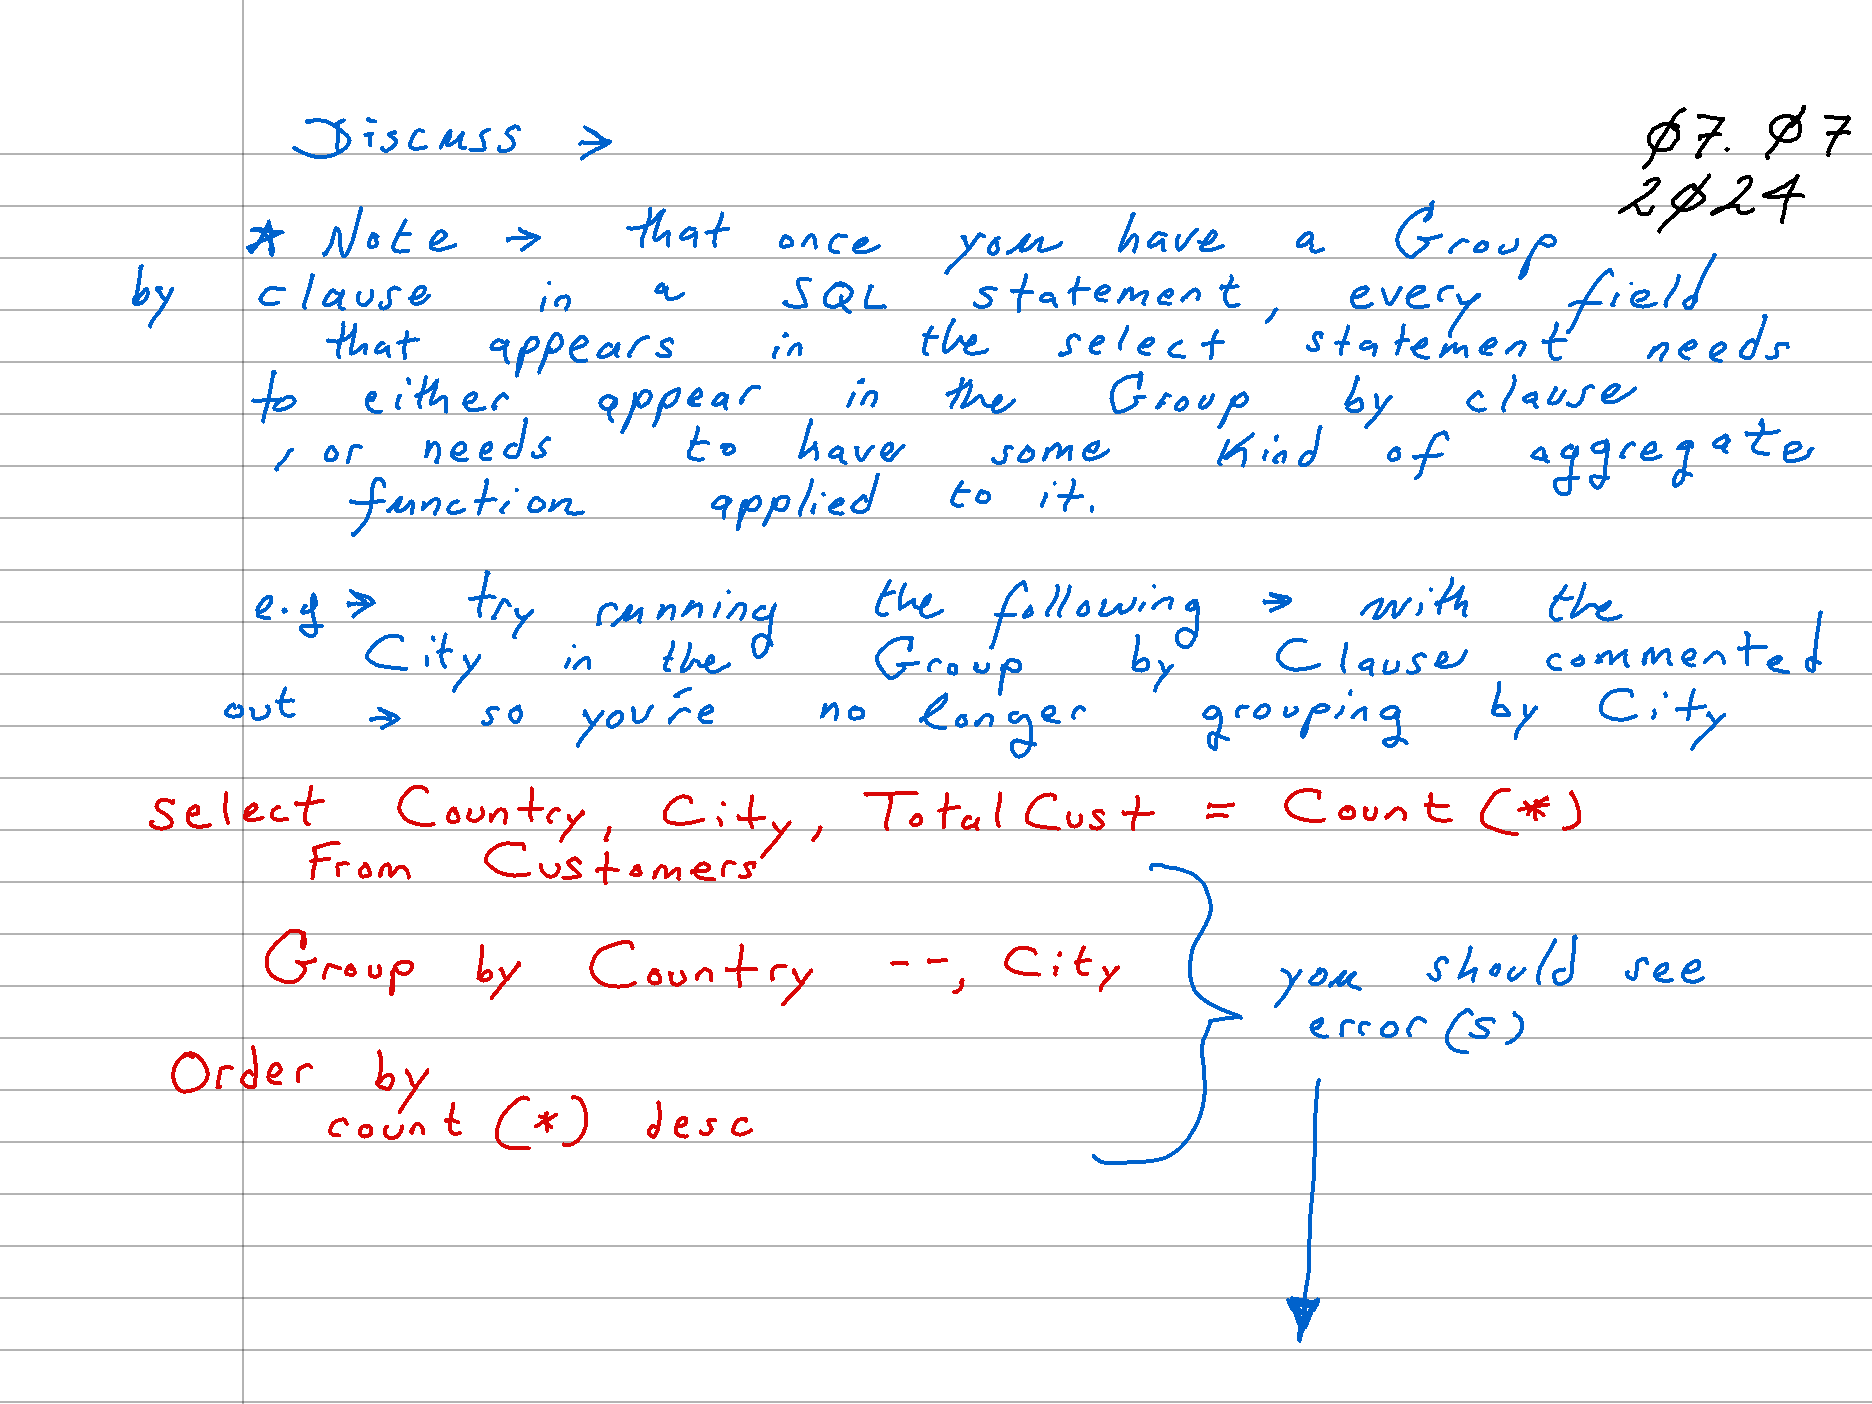 Discuss →
07.07
2024
* Note → that once you have a Group
by clause in a SQL statement, every field
that appears in the select statement needs
to either appear in the Group by clause
, or needs to have some kind of aggregate
function applied to it.
e.g → try running the following → with the
City in the Group by Clause commented
out → so you're no longer grouping by City
select Country, City, TotalCust = Count (*)
From Customers
Group by Country --, City
you should see
error(s)
Order by
count (*) desc